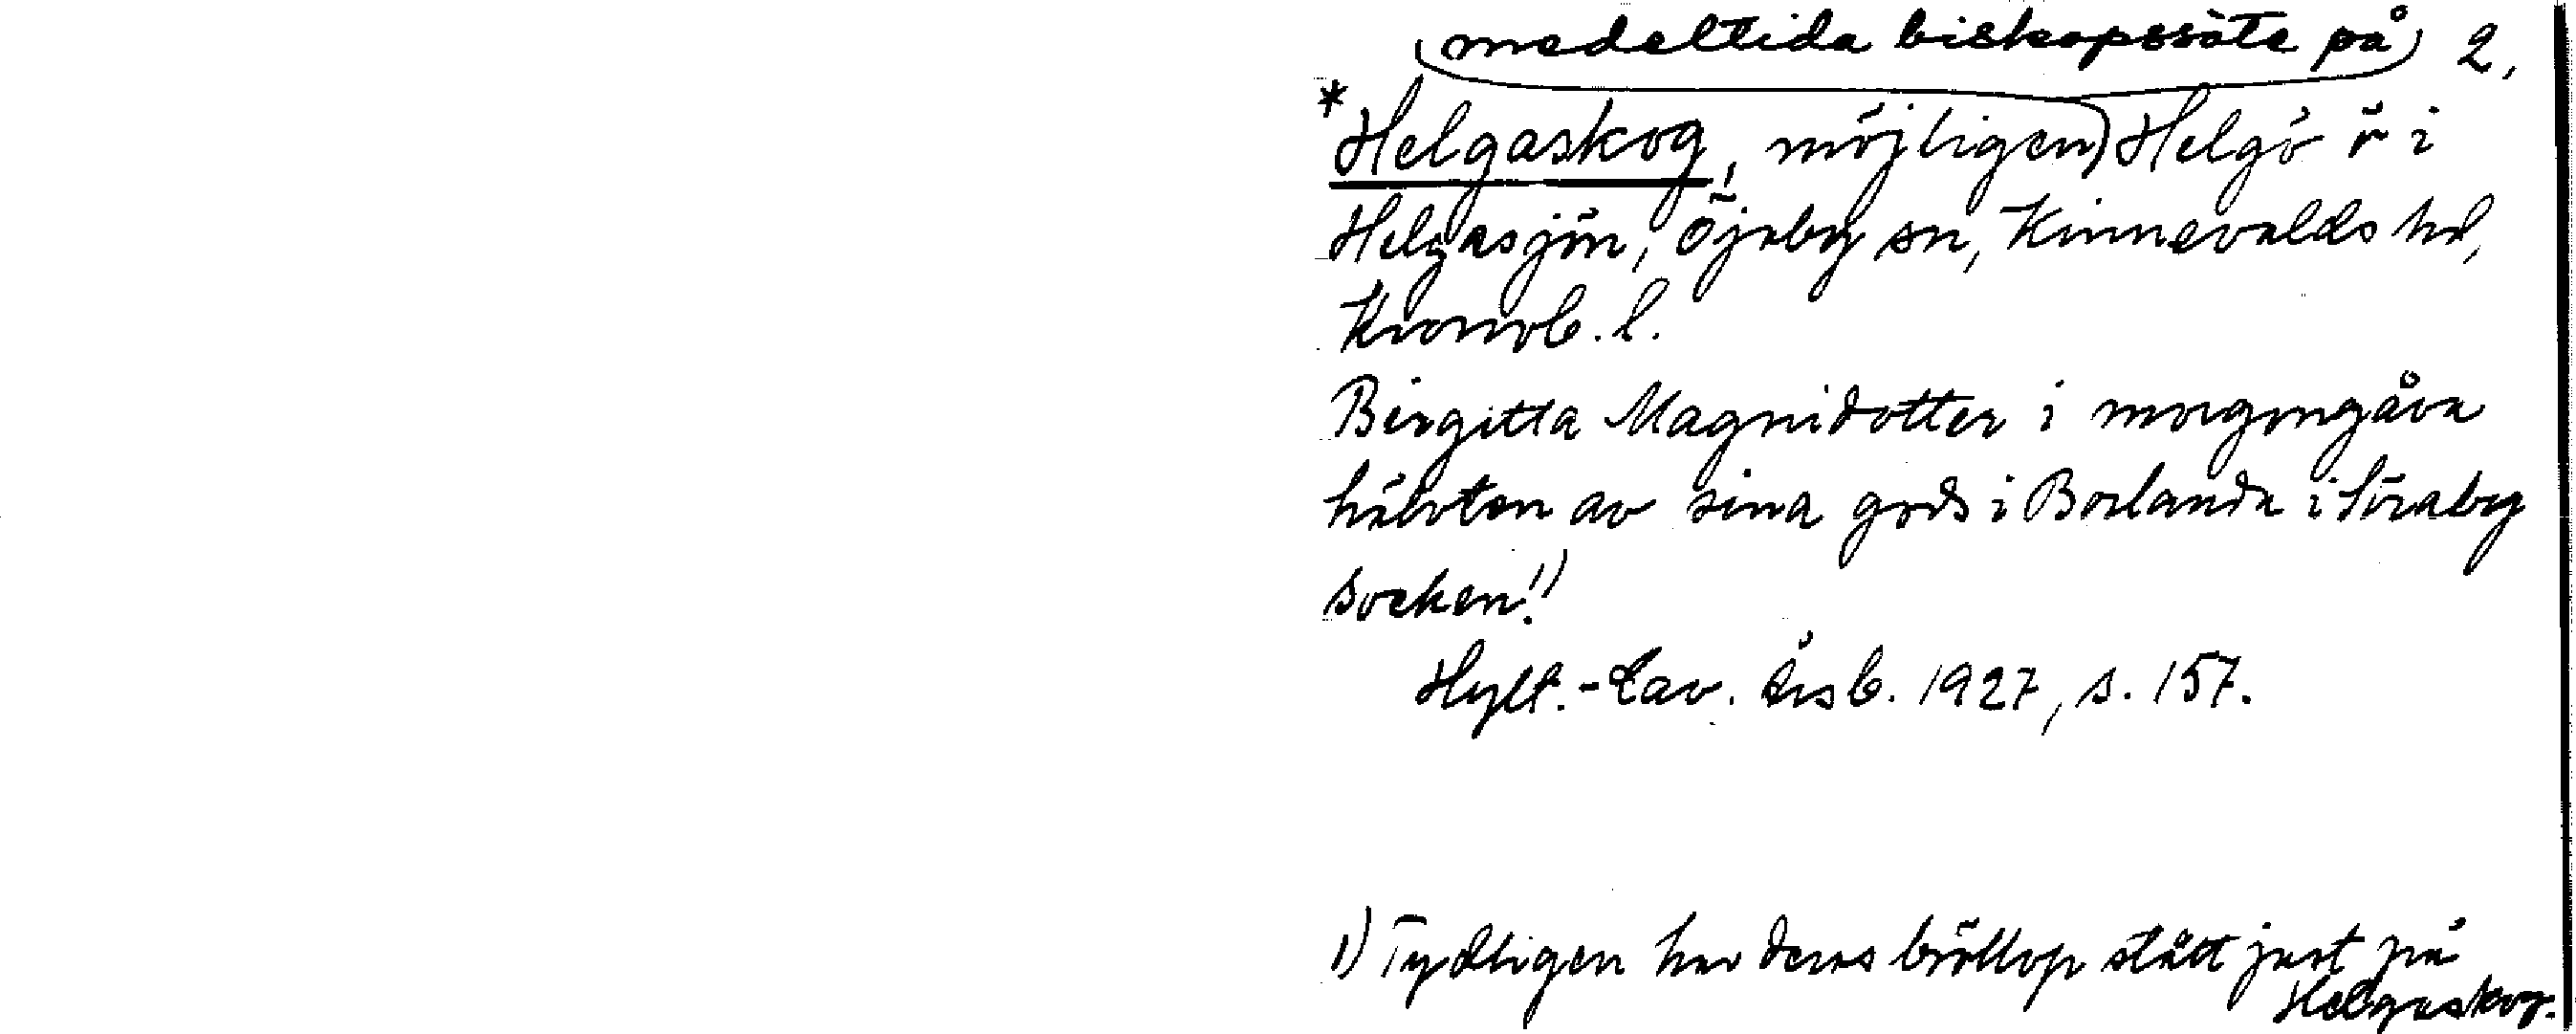 medeltida biskopssäte på 2,
*Helgaskog, möjligen) Helgö ö i
Helgasjön, Öjaby sn, Kinnevalds hd,
Kronob. l.
Birgitta Magnidotter i morgongåva
hälvten av sina gods i Borlanda i Söraby
socken!1)
Hylt.-Cav. årsb. 1927, s. 157.
1) Tydligen har deras bröllop stått just på
Helgaskog.